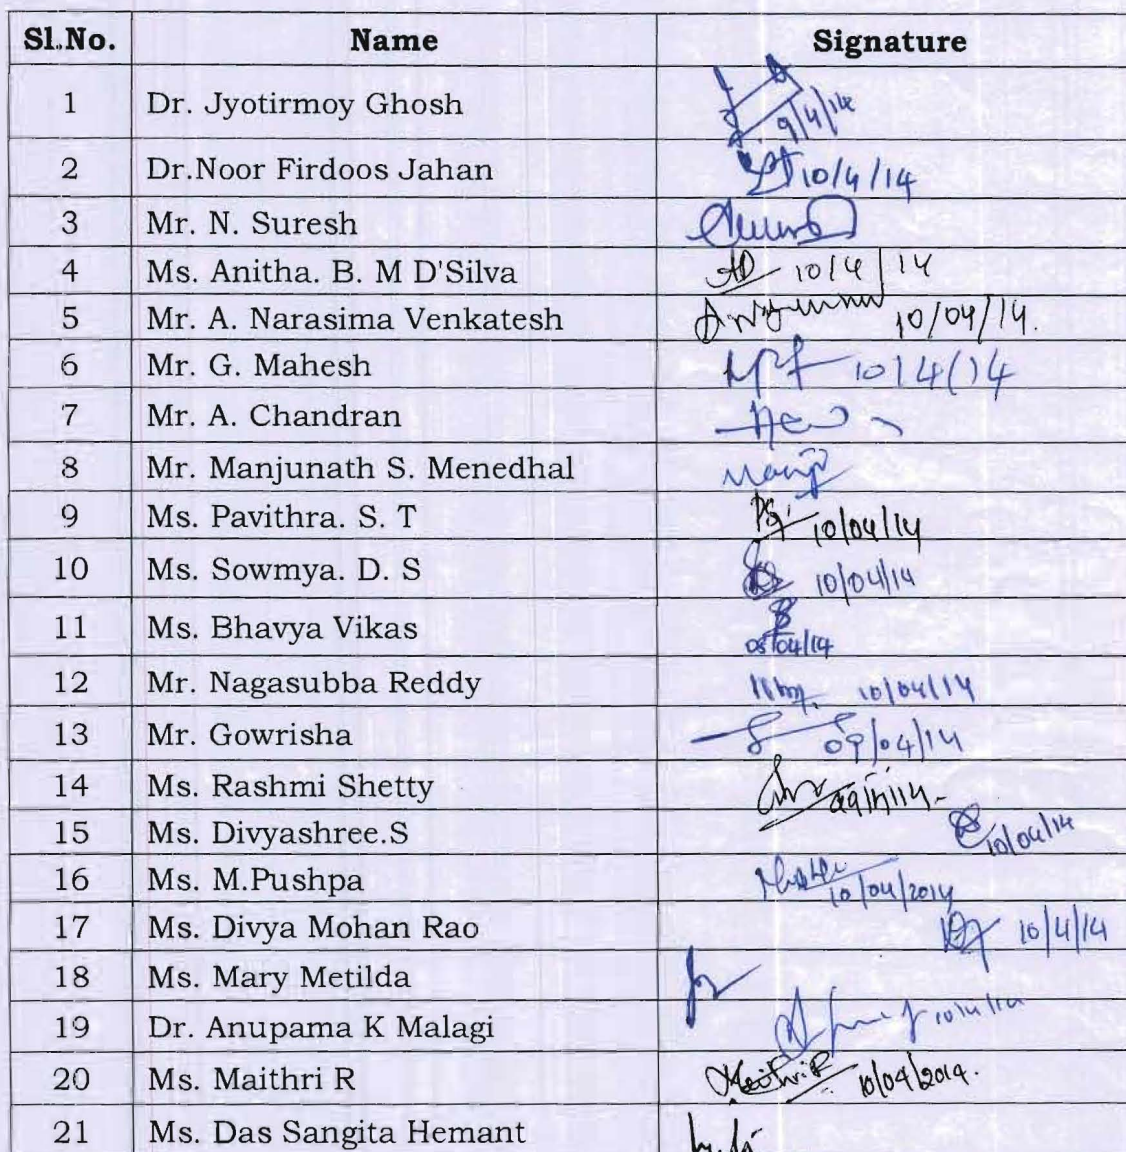 Sl.No. Name Signature
1 Dr. Jyotirmoy Ghosh 9/4/14
2 Dr.Noor Firdoos Jahan 10/4/14
3 Mr. N. Suresh
4 Ms. Anitha. B. M D'Silva AD 10/4/14
5 Mr. A. Narasima Venkatesh 10/04/14.
6 Mr. G. Mahesh 10/4/14
7 Mr. A. Chandran
8 Mr. Manjunath S. Menedhal
9 Ms. Pavithra. S. T 10/04/14
10 Ms. Sowmya. D. S 10/04/14
11 Ms. Bhavya Vikas 08/04/14
12 Mr. Nagasubba Reddy 10/04/14
13 Mr. Gowrisha 09/04/14
14 Ms. Rashmi Shetty
15 Ms. Divyashree.S 10/04/14
16 Ms. M.Pushpa 10/04/2014
17 Ms. Divya Mohan Rao 10/4/14
18 Ms. Mary Metilda
19 Dr. Anupama K Malagi 10/4/14
20 Ms. Maithri R Maithri R 10/04/2014.
21 Ms. Das Sangita Hemant